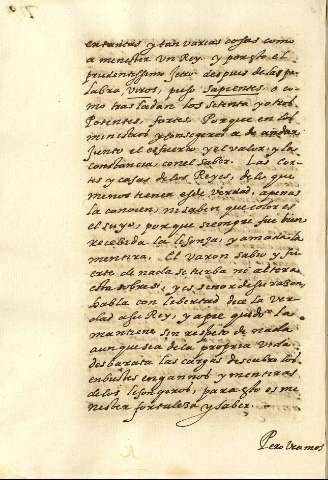 en tantas y tan varias cosas como
a menester un Rey. y por esto el
prudentissimo Jetro despues de la pa
labra, viros, puso sapientes, o co
mo trasladan los setenta y otros
Potentes, fortes. Porque en los
ministros y consegeros a de andar
junto el esfuerço y el valor, y la
constancia, con el saber. Las cor
tes y casas de los Reyes, de lo que
menos tienen es de verdad, apenas
la conocen, ni saben que color es
el suyo, porque siempre fue bien
recebida la lisonja, y amada la
mentira. El varon sabio y fu
erte de nada se turba ni altera
esta sobre si, y es señor de su razon,
habla con libertad dice la ver
dad a su Rey, y a pie quedo la
mantiene sin respeto de nada
aunque sea de la propria vida
desbarata las cargas descubre los
enbustes engannos y mentiras
de los lisongeros, para esto es me
nester fortaleza y saber.
Pero veamos